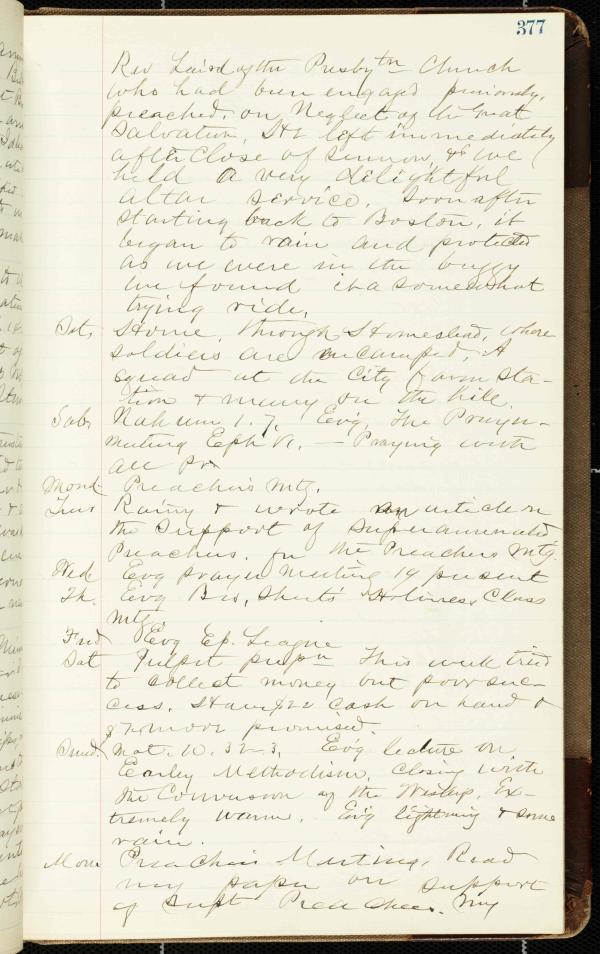 377
Rev Laird of the Presbytn Church
who had been engaged previously,
preached, on Neglect of the Great
Salvation, He left immediately
after close of sermon, & we
held a very delightful
altar service. Soon after
starting back to Boston, it
began to rain and protected
as we were in the buggy
we found it a somewhat
trying ride.
Sat. Home, through Homestead, where
soldiers are encamped, A
squad at the City Farm Sta-
tion & many on the hill.
Sab. Nahum 1.7. Evg, The Prayer-
meeting Eph VI. — Praying with
all Pr
Mond. Preachers Mtg.
Tues Rainy & wrote an article on
the Support of Superannuated
Preachers. for the Preachers Mtg.
Wed. Evg prayer meeting 19 present
Th. Evg Bro, Holiness Class
Mtg.
Frid Evg Ep. League
Sat Pulpit prepn This week tried
to collect money but poor suc-
cess. Have $22 cash on hand &
more promised.
Sund. Mat. 10. 32-3, Evg lecture on
Early Methodism, closing with
the Conversion of the Wesleys. Ex-
tremely warm. Evg lightning & some
rain.
Mon Preachers Meeting. Read
my paper on support
of Supt Preachers. My